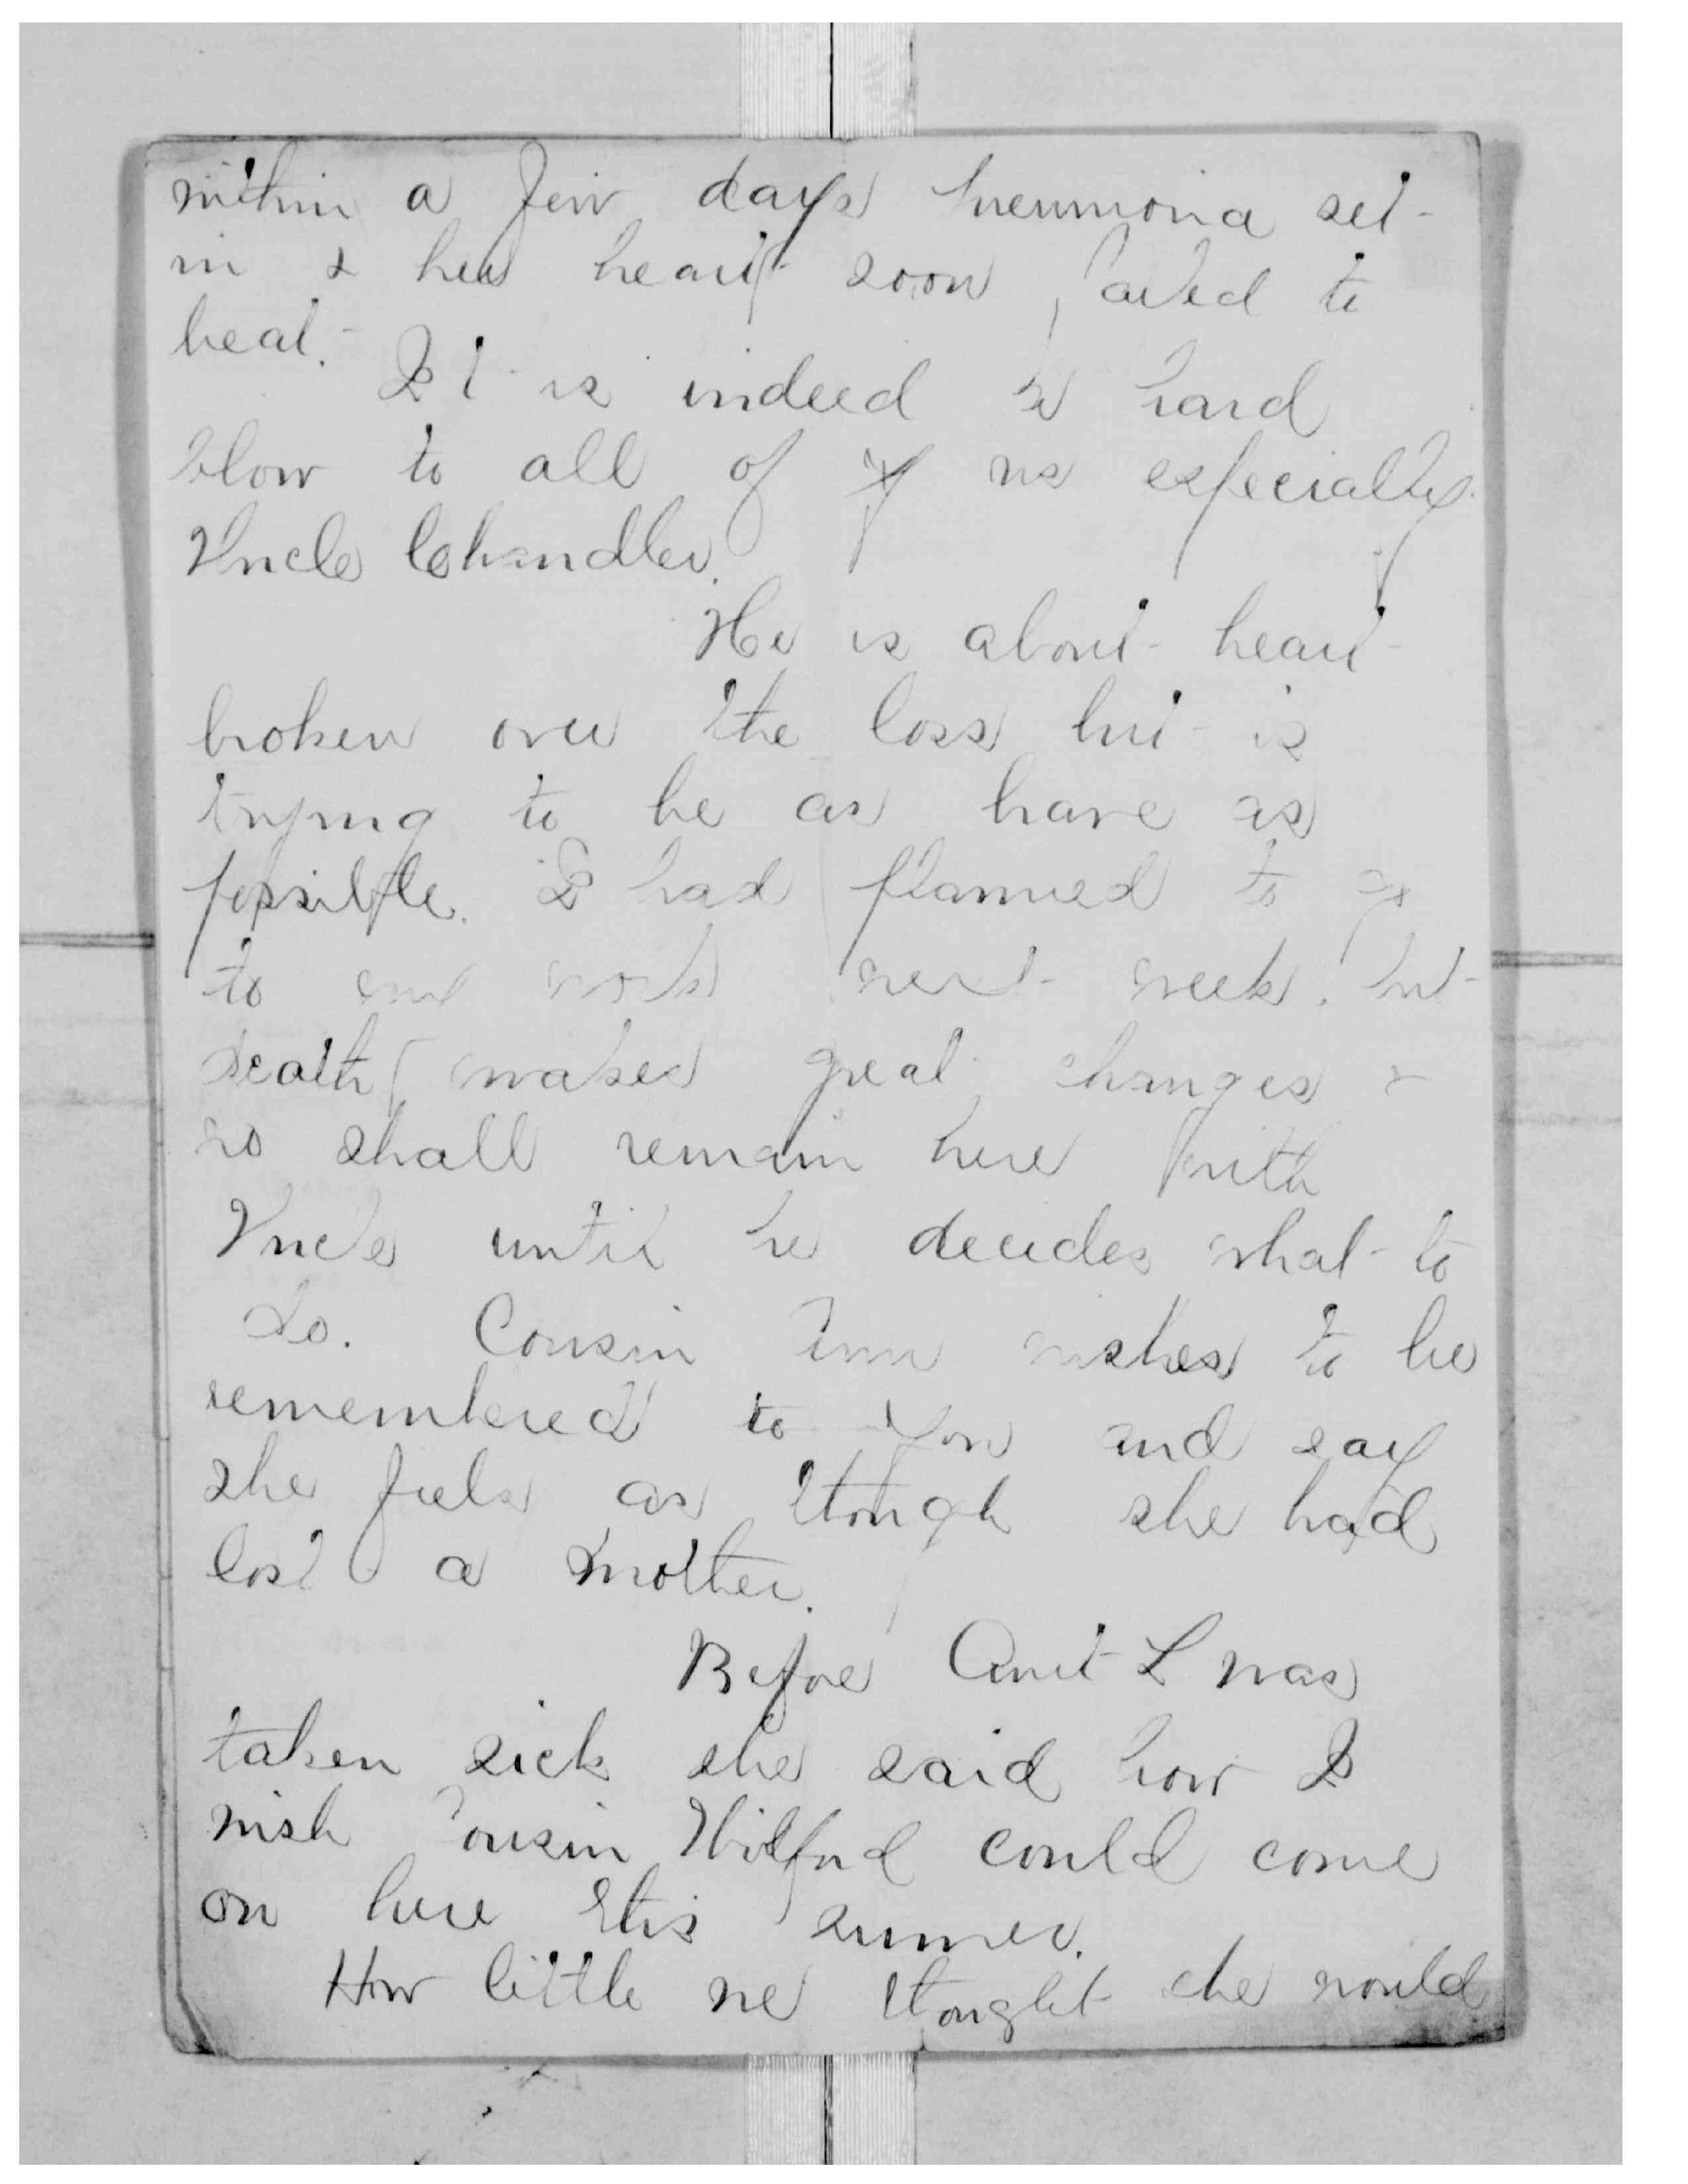 within a few days Pneumonia set
in & her heart soon failed to
beat.
It is indeed a hard
blow to all of us especially
Uncle Chandler.
He is about heart
broken over the loss but is
trying to be as brave as
possible. I had planned to go
to work next week. but
death makes great changes &
so shall remain here with
Uncle until he decides what to
do. Cousin Ann wishes to be
remembered to you and say
she feels as though she had
lost a mother.
Before Aunt L was
taken sick she said how I
wish Cousin Wilford could come
on here this summer.
How little we thought she would